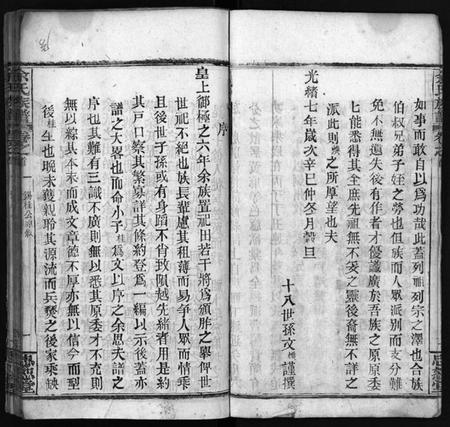 如事而敢自以爲功哉此蓋列祖列宗之澤也合族
伯叔兄弟子姪之勞也但族而人眾派別而支分難
免不無遺失後有作者才優識廣於吾族之原原委
七能悉得其全庶先祖無不妥之靈後裔無不詳之
派此則之所厚望也夫
光緒七年歲次辛巳仲冬月穀旦
十八世孫文謹撰
序
皇上御極之六年余族置祀田若干將爲頒胙之舉俾世
世祀不絕也族長輩慮其租薄而易爭人眾而情乖
且後世子孫或有身蹈不肖致隕越先緒者用是約
其戶口察其繁寡詳其條約登爲一編以示後蓋亦
譜之大畧也而命小子爲文以序之余思夫譜之
序也其難有三識不廣則無以悉其原委才不充則
無以綜其本末而成文章德不厚亦無以信今而型
後生也晚未獲親聆其源流而兵燹之後家乘
余氏族譜